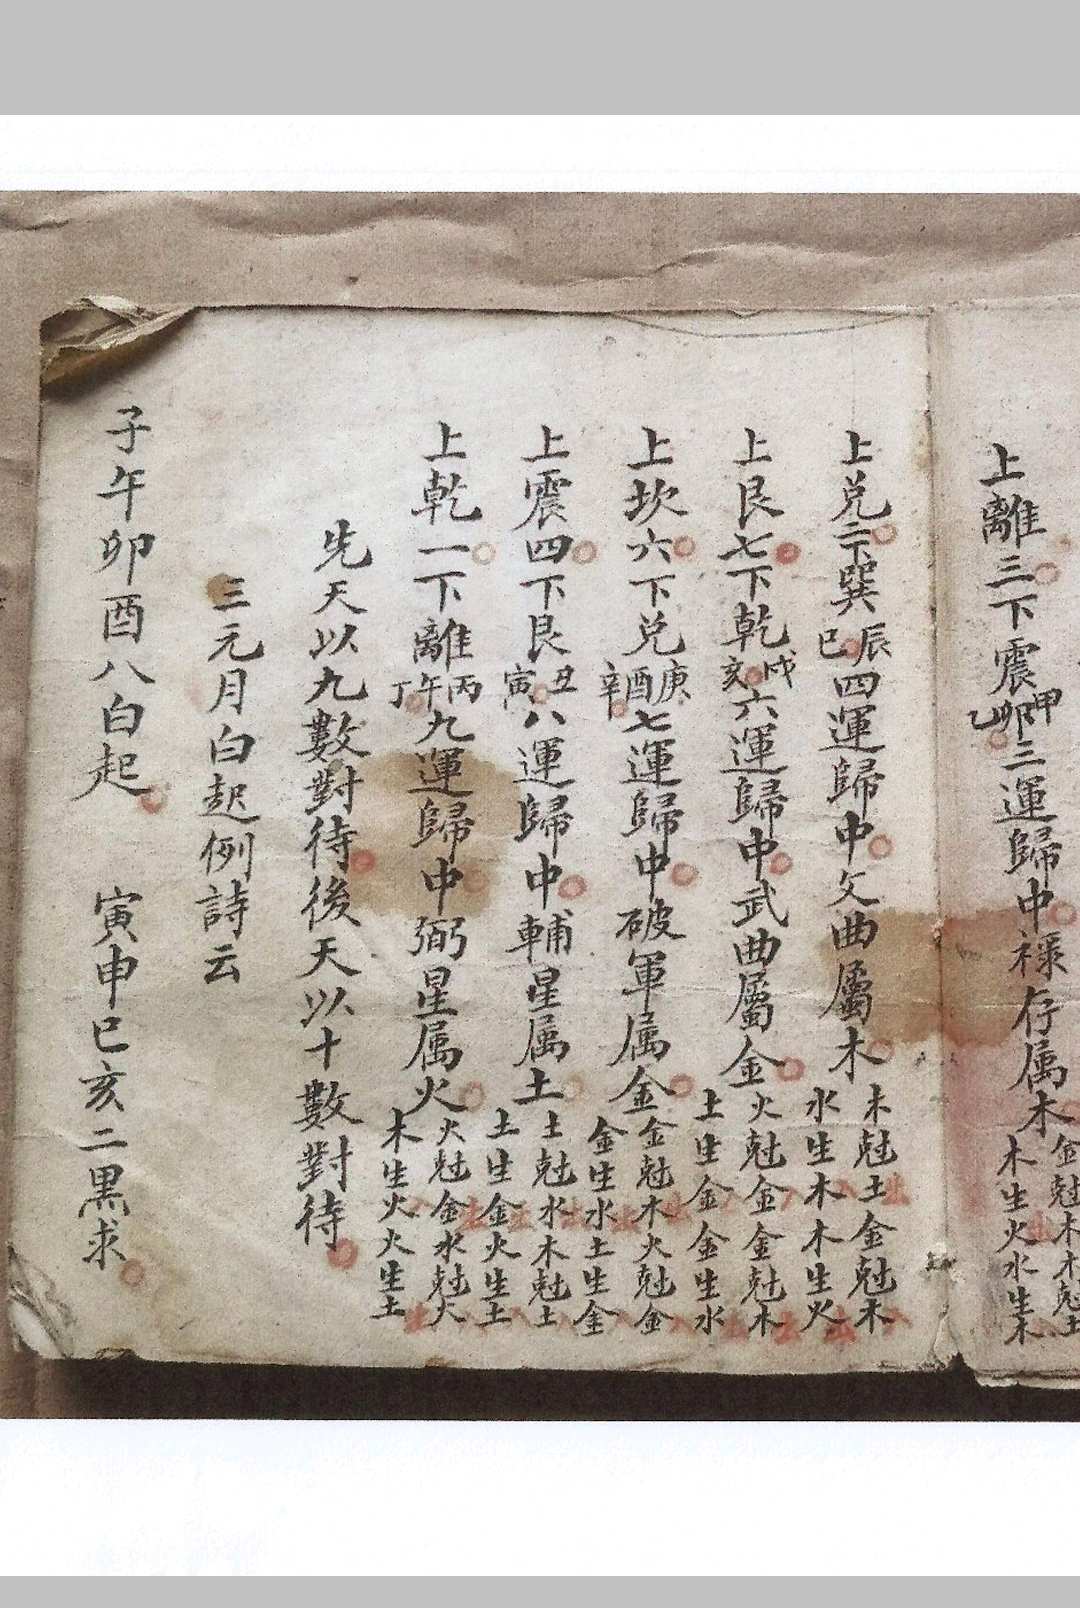 上離三下震甲卯乙三運歸中禄存属木金尅木木尅土
木生火水生木
上兑二下巽辰巳四運歸中文曲屬木木尅土金尅木
水生木木生火
上艮七下乾戌亥六運歸中武曲屬金火尅金金尅木
土生金金生水
上坎六下兑庚酉辛七運歸中破軍属金金尅木火尅金
金生水土生金
上震四下艮丑寅八運歸中輔星属土土尅水木尅土
土生金火生土
上乾一下離丙午丁九運歸中弼星属火火尅金水尅火
木生火火生土
先天以九數對待後天以十數對待
三元月白起例詩云
子午卯酉八白起 寅申巳亥二黑求